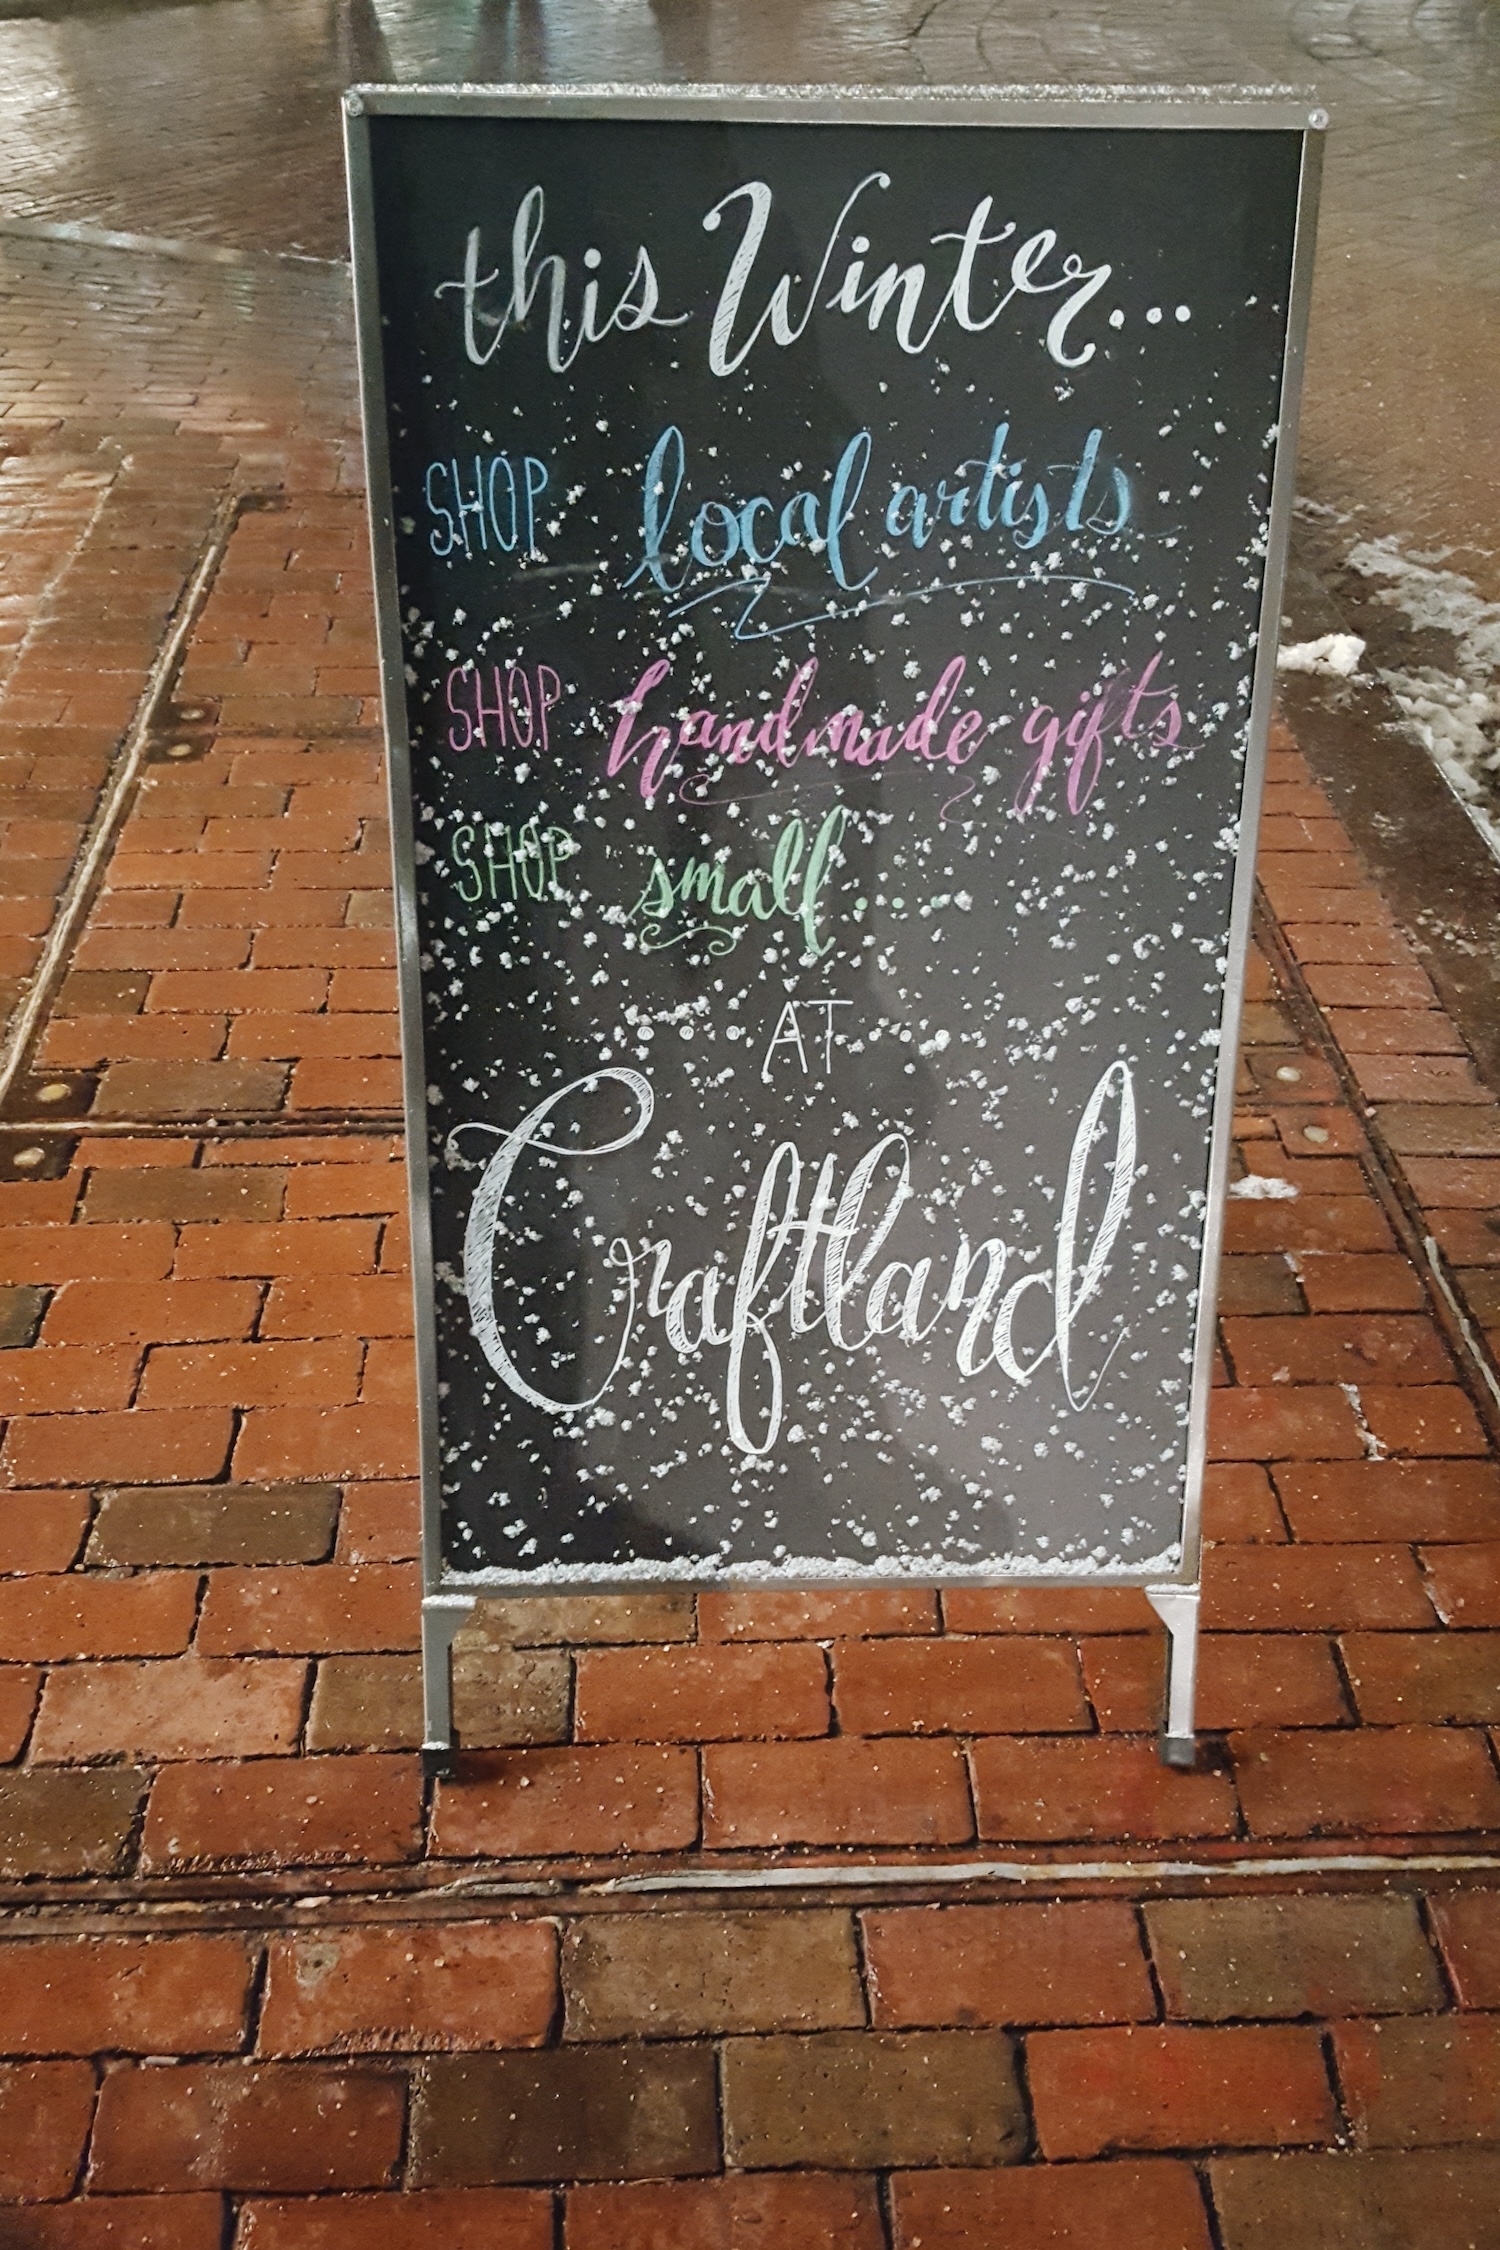 this Winter...
SHOP local artists
SHOP handmade gifts
SHOP small....
...AT...
Craftland